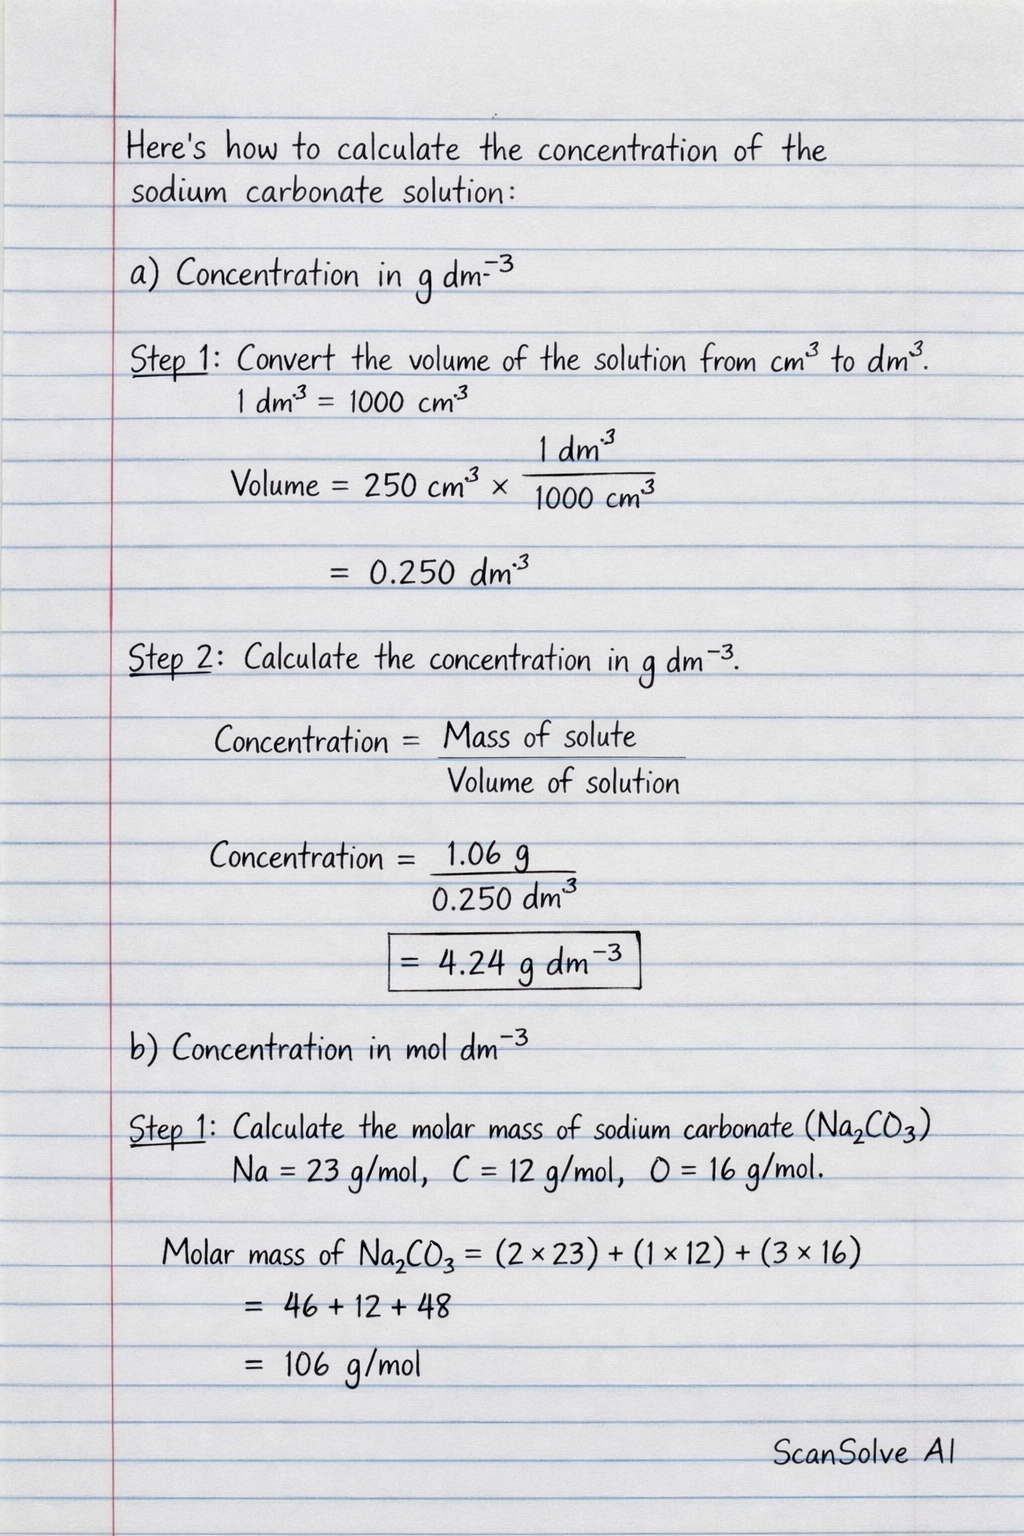 Here's how to calculate the concentration of the
sodium carbonate solution:
a) Concentration in g dm⁻³
Step 1: Convert the volume of the solution from cm³ to dm³.
1 dm³ = 1000 cm³
1 dm³
Volume = 250 cm³ × ———
1000 cm³
= 0.250 dm³
Step 2: Calculate the concentration in g dm⁻³.
Concentration = Mass of solute
Volume of solution
Concentration = 1.06 g
0.250 dm³
= 4.24 g dm⁻³
b) Concentration in mol dm⁻³
Step 1: Calculate the molar mass of sodium carbonate (Na₂CO₃)
Na = 23 g/mol, C = 12 g/mol, O = 16 g/mol.
Molar mass of Na₂CO₃ = (2 × 23) + (1 × 12) + (3 × 16)
= 46 + 12 + 48
= 106 g/mol
ScanSolve AI